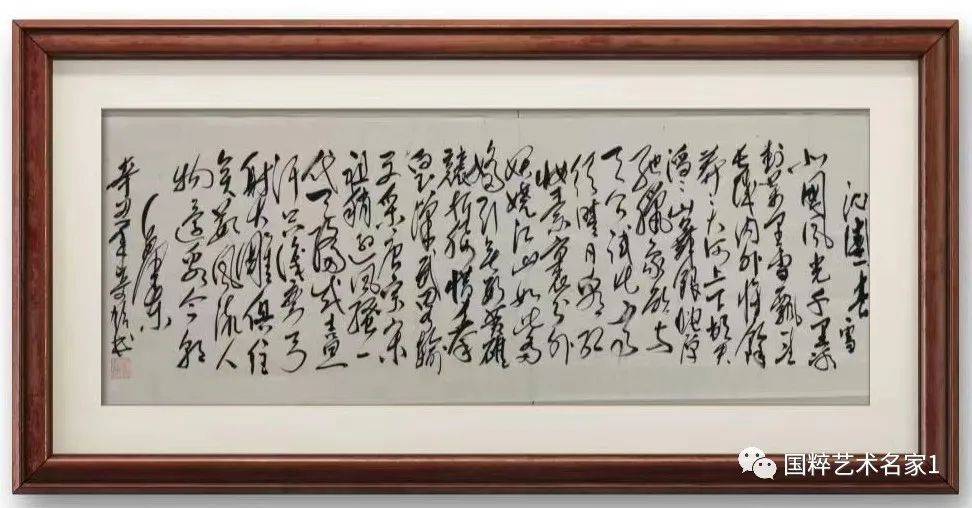 沁園春 雪
北國風光千里冰
封萬里雪飄望
長城內外惟餘
莽々大河上下頓失
滔々山舞銀蛇原
馳蠟象欲与
天公試比高
須晴日看紅
妝素裹分外
妖嬈江山如此多
嬌引無數英雄
競折腰惜秦
皇漢武略輸
文采唐宗宋
祖稍遜風騷一
代天驕成吉思
汗只識彎弓
射大雕俱往
矣數風流人
物還看今朝
毛澤東
国粹艺术名家1